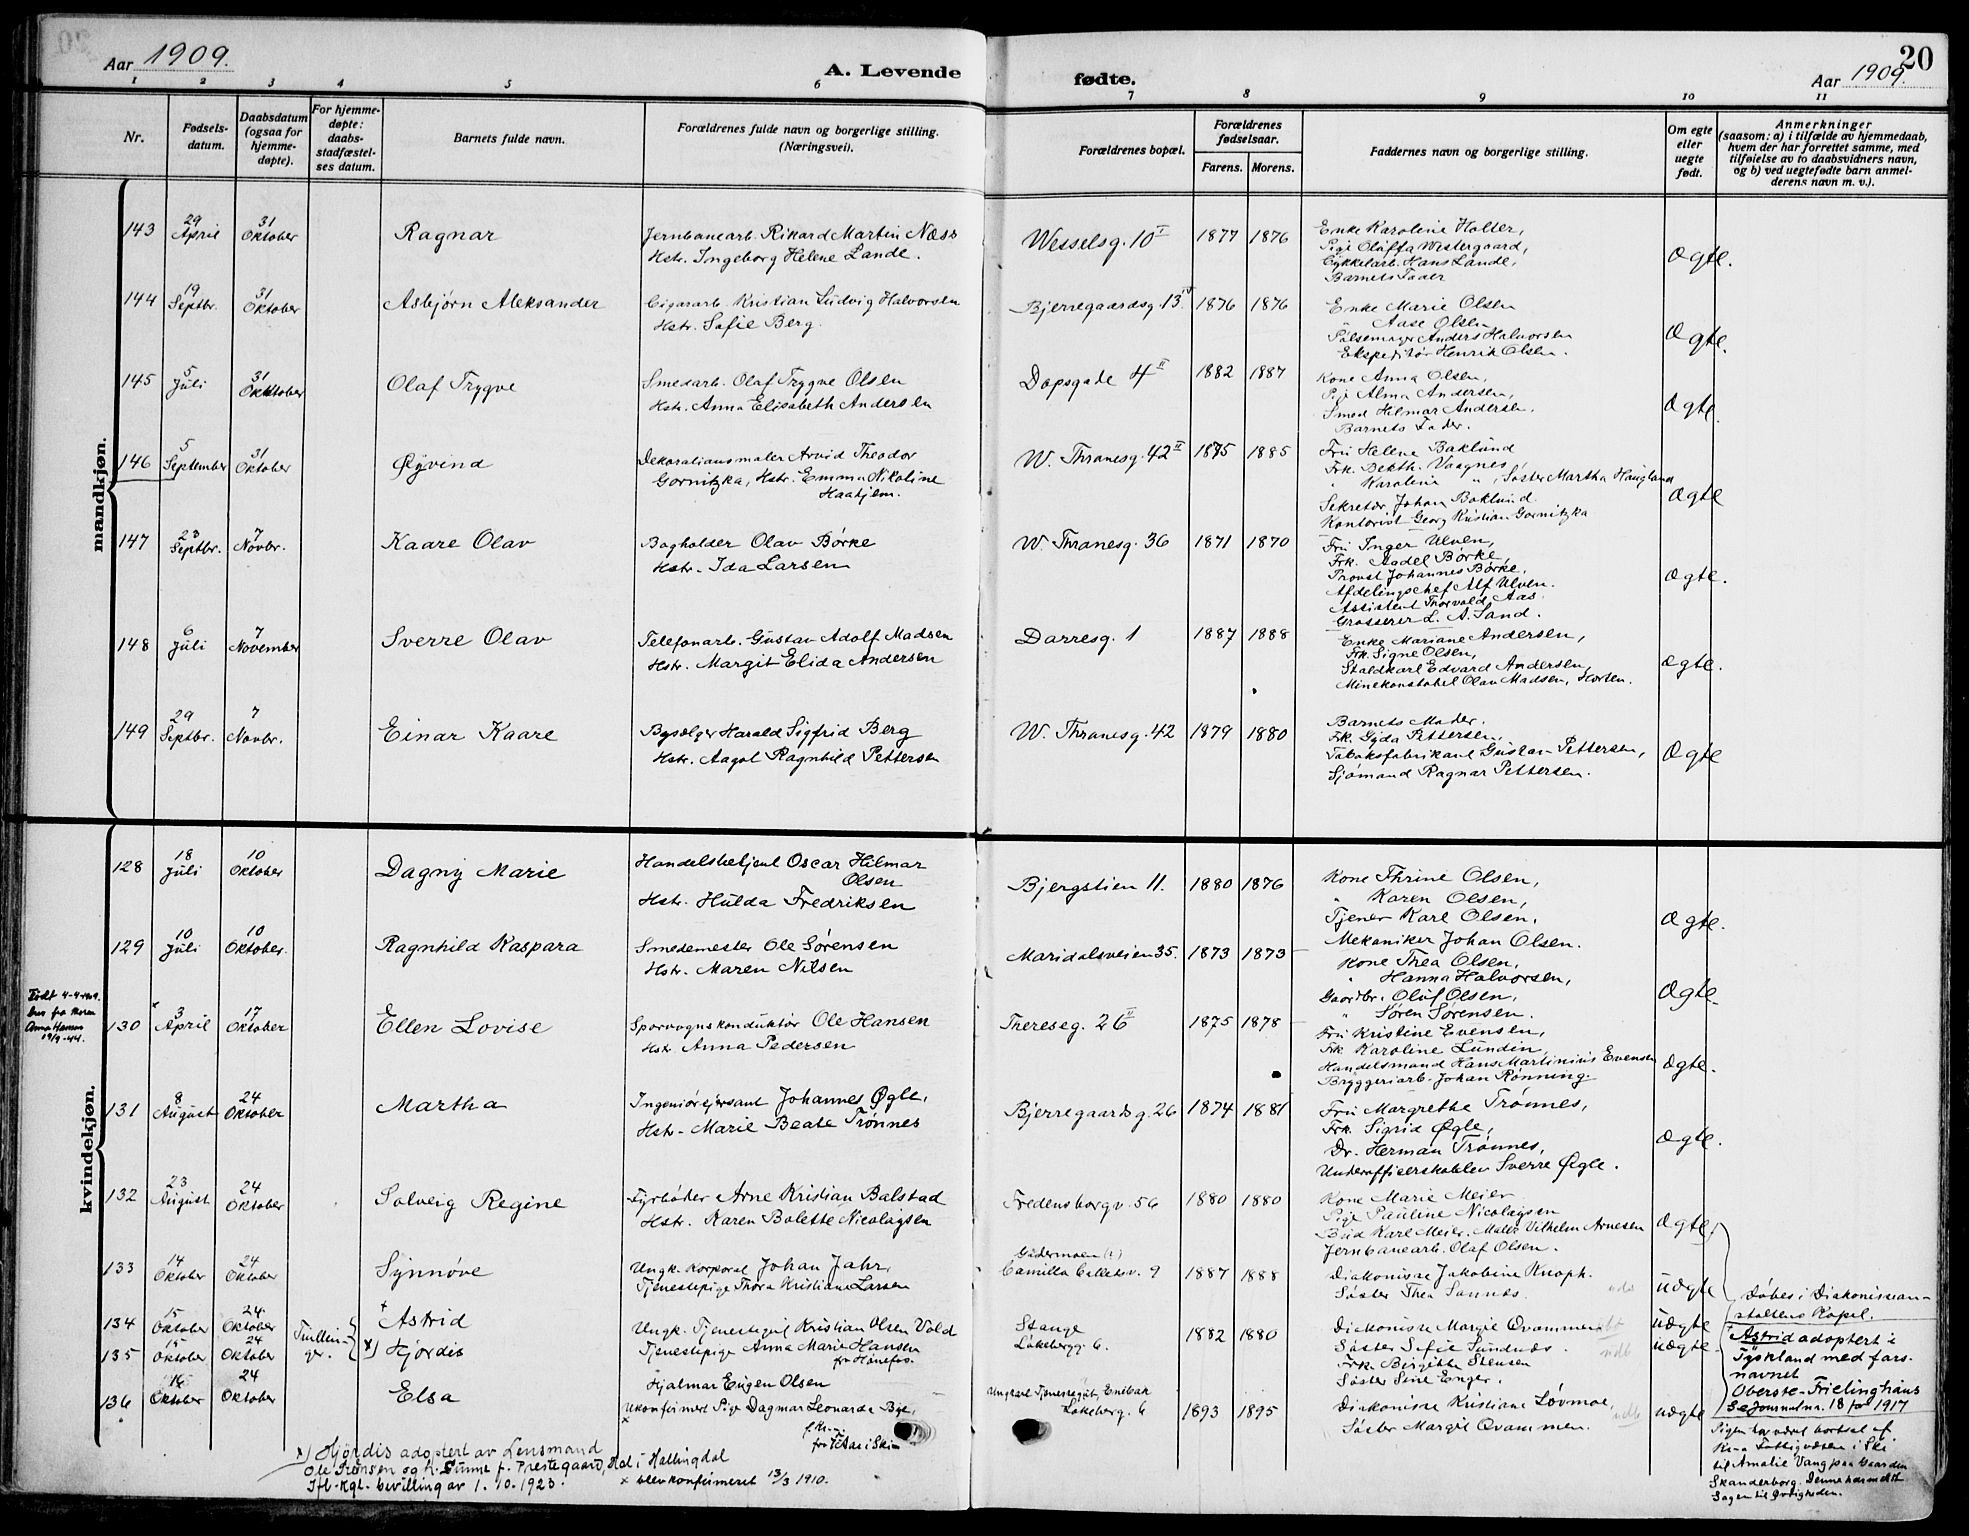 Aar 1909.
A. Levende
fødte.
Aar 1909.
20
1 2 3 4 5 6 7 8 9 10 11
Nr.
Fødsels-
datum.
Daabsdatum
(ogsaa for
hjemme-
døpte).
For hjemme-
døpte:
daabs-
stadfæstel-
ses datum.
Barnets fulde navn.
Forældrenes fulde navn og borgerlige stilling.
(Næringsvei).
Forældrenes bopæl.
Forældrenes
fødselsaar.
Farens. Morens.
Faddernes navn og borgerlige stilling.
Om egte
eller
uegte
født.
Anmerkninger
(saasom: a) i tilfælde av hjemmedaab,
hvem der har forrettet samme, med
tilføielse av to daabsvidners navn,
og b) ved uegtefødte barn anmel-
derens navn m. v.).
mandkjøn.
143
29 April
31 Oktober
Ragnar
Jernbanearb. Rikard Martin Næss
Hstr. Ingeborg Helene Lande.
Wesselsg. 10 I
1877 1876
Enke Karoline Holter,
Pige Olaffa Westergaard,
Cykkelarb. Hans Lande,
Barnets Fader
Ægte.
144
19 Septbr.
31 Oktober
Asbjørn Aleksander
Cigararb. Kristian Ludvig Halvorsen
Hstr. Sofie Berg.
Bjerregaardsg. 13
1876 1876
Enke Marie Olsen
" Aase Olsen
Pølsemager Anders Halvorsen
Ekspeditør Henrik Olsen.
Ægte.
145
5 Juli
31 Oktober
Olaf Trygve
Smedarb. Olaf Trygve Olsen
Hstr. Anna Elisabeth Andersen
Dopsgade 4 II
1882 1887
Kone Anna Olsen,
Pige Alma Andersen,
Smed Hilmar Andersen,
Barnets Fader.
Ægte.
146
5 September
31 Oktober
Øyvind
Dekorationsmaler Arvid Theodor
Gornitzka, Hstr. Emma Nikoline
Haahjem.
W. Thranesg. 42 II
1875 1885
Fru Helene Baklund
Frk. Berth. Vaagnes,
" Karoline " , Søster Martha Haugland
Sekretær Johan Baklund.
Kontorist Georg Kristian Gornitzka
Ægte
147
23 Septbr.
7 Novbr.
Kaare Olav
Bogholder Olav Børke
Hstr. Ida Larsen
W. Thranesg. 36
1871 1870
Fru Inger Ulven,
Frk. Aadel Børke,
Provst Johannes Børke,
Afdelingschef Alf Ulven.
Assistent Thorvald Aas.
Grosserer L. A. Sand.
Ægte.
148
6 Juli
7 November
Sverre Olav
Telefonarb. Gustav Adolf Madsen
Hstr. Margit Elida Andersen
Darresg. 1
1887 1888
Enke Mariane Andersen,
Frk. Signe Olsen,
Staldkarl Edvard Andersen,
Minekonstabel Olav Madsen, Horten.
Ægte.
149
29 Septbr.
7 Novbr.
Einar Kaare
Bysælger Harald Sigfrid Berg
Hstr. Aagot Ragnhild Pettersen
W. Thranesg. 42
1879 1880
Barnets Moder.
Frk. Gyda Pettersen,
Tobaksfabrikant Gustav Pettersen,
Sjømand Ragnar Pettersen.
Ægte
kvindekjøn.
128
18 Juli
10 Oktober
Dagny Marie
Handelsbetjent Oscar Hilmar
Olsen
Hstr. Hulda Fredriksen
Bjergstien 11.
1880 1876
Kone Thrine Olsen,
" Karen Olsen,
Tjener Karl Olsen.
Mekaniker Johan Olsen.
Ægte.
129
10 Juli
10 Oktober.
Ragnhild Kaspara
Smedemester Ole Sørensen
Hstr. Maren Nilsen
Maridalsveien 35.
1873 1873
Kone Thea Olsen,
" Hanna Halvorsen,
Gaardbr. Olaf Olsen,
" Søren Sørensen.
Ægte.
Født 4-4
Anna Hansen
19/9-44.
130
3 April
17 Oktober
Ellen Lovise
Sporvognskonduktør Ole Hansen
Hstr. Anna Pedersen
Thereseg. 26 II
1875 1878
Fru Kristine Evensen,
Frk Karoline Lundin,
Handelsmand Hans Martinius Evensen
Bryggeriarb. Johan Rønning.
Ægte.
131
8 August
24 Oktober
Martha
Johannes Øgle,
Hstr. Marie Beate Trønnes
Bjerregaardsg. 26
1874 1881
Fru Margrethe Trønnes,
Frk. Sigrid Øgle,
Dr. Herman Trønnes,
Underofficerskolelev Sverre Øgle.
Ægte.
132
23 August
24 Oktober
Solveig Regine
Fyrbøder Arne Kristian Balstad
Hstr. Karen Bolette Nicolaysen
Fredensborgv. 56
1880 1880
Kone Marie Meier
Pige Pauline Nicolaysen
Bud Karl Meier. Maler Vilhelm Arnesen
Jernbanearb. Olaf Olsen.
Ægte
133
14 Oktober
24 Oktober
Synnøve
Ungk. Korporal Johan Jahr,
Tjenestepige Thora Kristiane Larsen
Gardermoen (?)
Camilla Colletsv. 9
1887 1888
Diakonisse Jakobine Knoph.
Søster Thea Sannes.
Uægte
134
15 Oktober
24 Oktober
Tvillin-
ger.
Astrid
Ungk. Tjenestegut Kristian Olsen Vold
Tjenestepige Anna Marie Hansen
fra Hønefos.
Stange
Løkebergg. 6.
1882 1880
Diakonisse Margit Qvammen
Søster Sofie Sundnæs.
Frk. Birgitte Stensen
Søster Sine Enger.
Uægte
135
15 Oktober
24 Oktober
x) Hjørdis
Uægte.
136
16 Oktober
24 Oktober
Elsa
Hjalmar Eugen Olsen
Ukonfirmert Pige Dagmar Leonarda Bye,
fra i Ski
Ungkarl Tjenestegut, Enebak
Løkeberg. 6
1893 1895
Diakonisse Kristiane Løvmo,
Søster Margit Qvammen.
uægte
Døbes i Diakonissean-
staltens Kapel.
Astrid adoptert i
Tyskland med fars-
navnet
Oberste-Frielinghaus
Se Journalnr. 18 for 1917
Pigen har været bortsat af
Fattigvæsen i Ski
til Amalie Vang paa Gaarden
Skanderborg. Denne har meldt
Sagen til Øvrigheden.
x) Hjørdis adoptert av Lensmand
Ole Trønsen og h. Sunne f. Prestegaard, Hol i Hallingdal
Ifl. Kgl. bevilling av 1. 10. 1923.
x blev konfirmeret 13/3 1910.